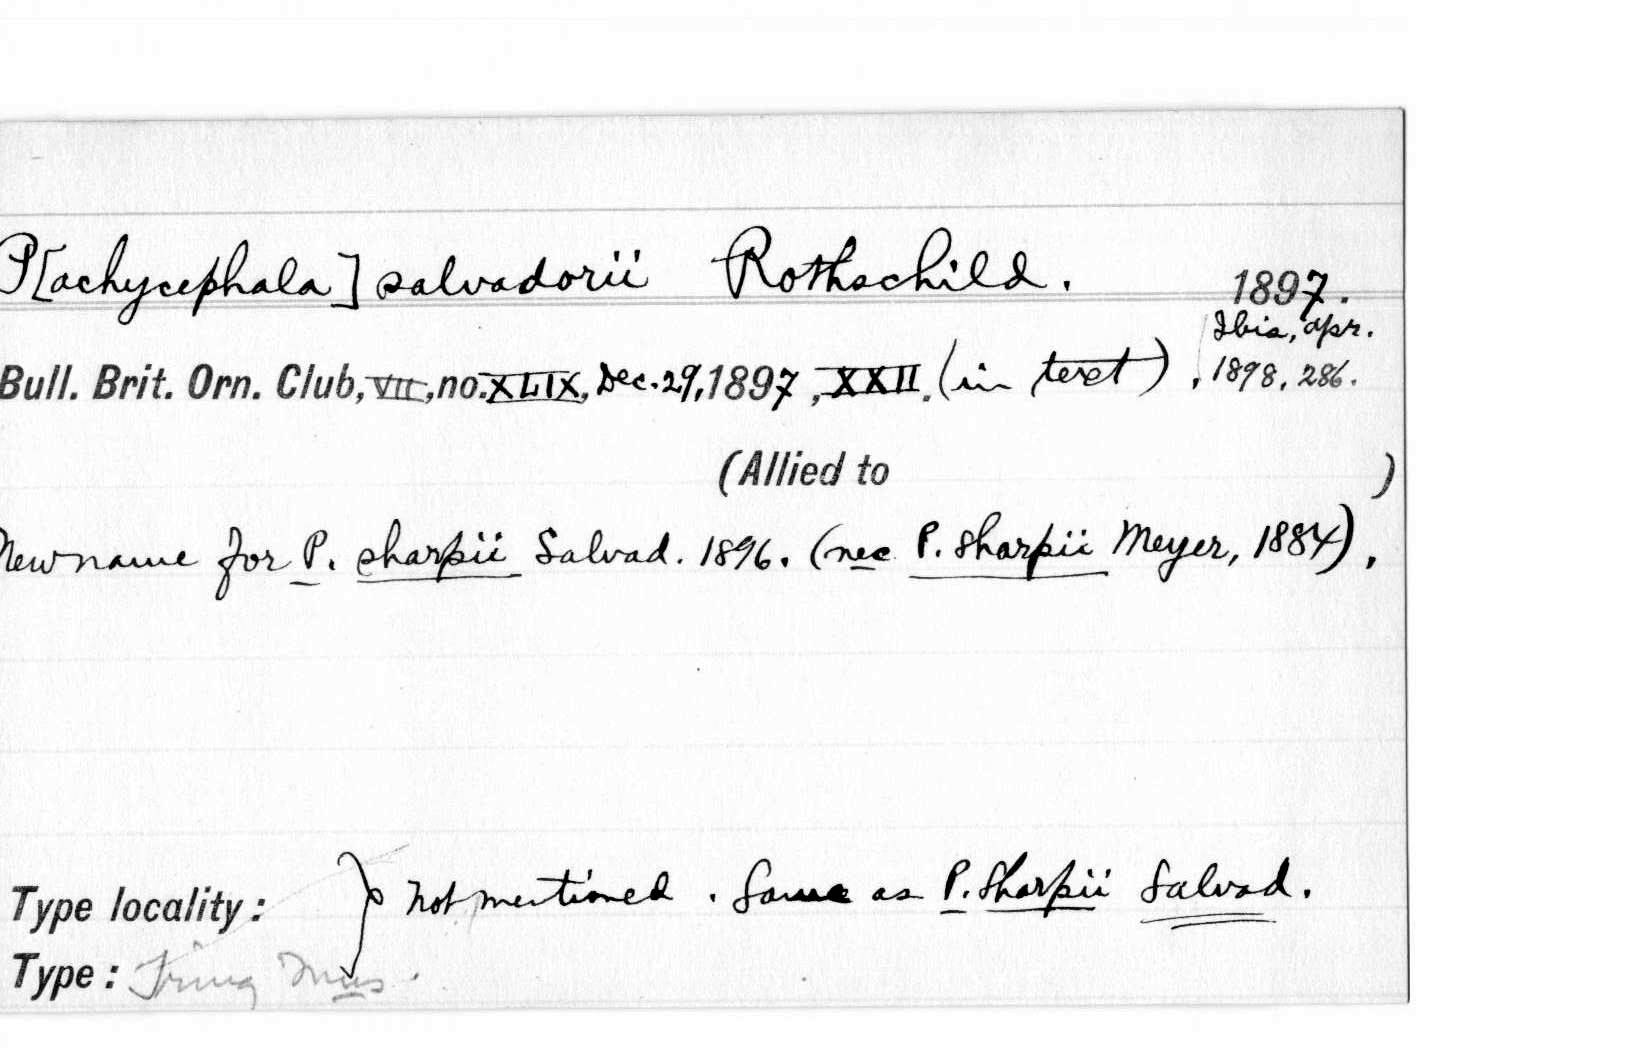 P[achycephala] salvadorii Rothschild. 1897.
Ibis, Apr.
Bull. Brit. Orn. Club, VII, no. XLIX, Dec. 29, 1897, XXII. (in text), 1898, 286.
(Allied to )
New name for P. sharpii Salvad. 1896. (nec P. sharpii Meyer, 1884).
Type locality: } not mentioned. Same as P. sharpii Salvad.
Type: Tring Mus.